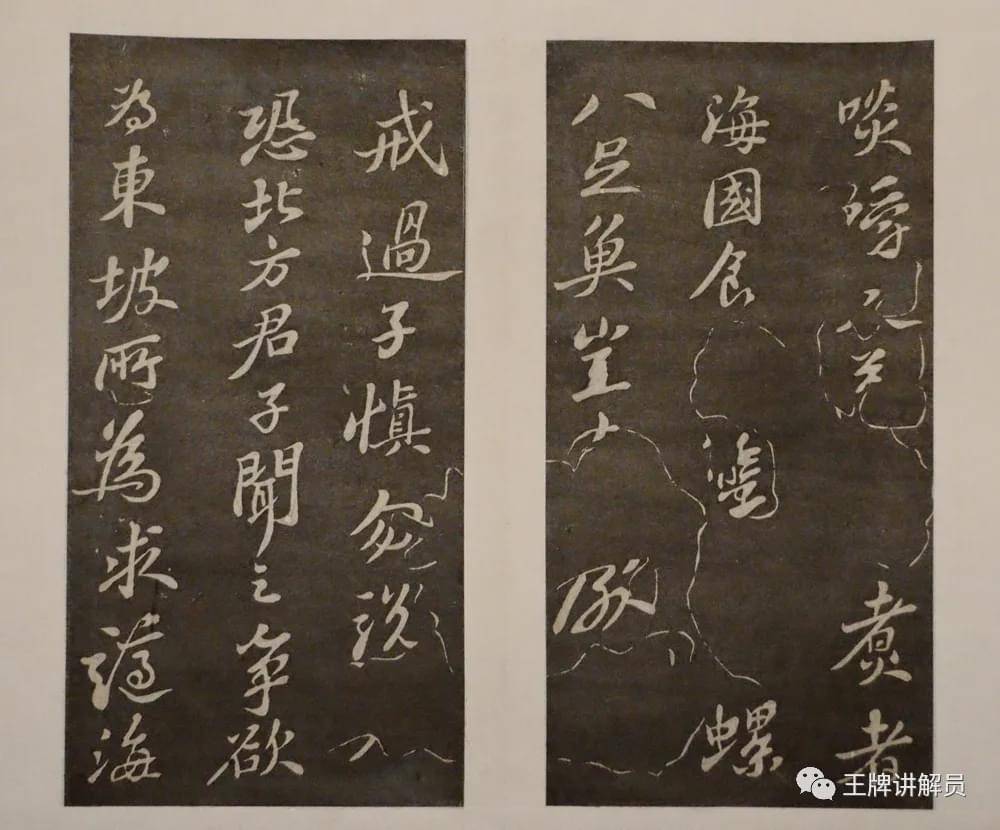 啖嚼煮者
海國食螺
八足魚豈
戒過子慎勿說
恐北方君子聞之爭欲
為東坡所為求謫海
王牌讲解员